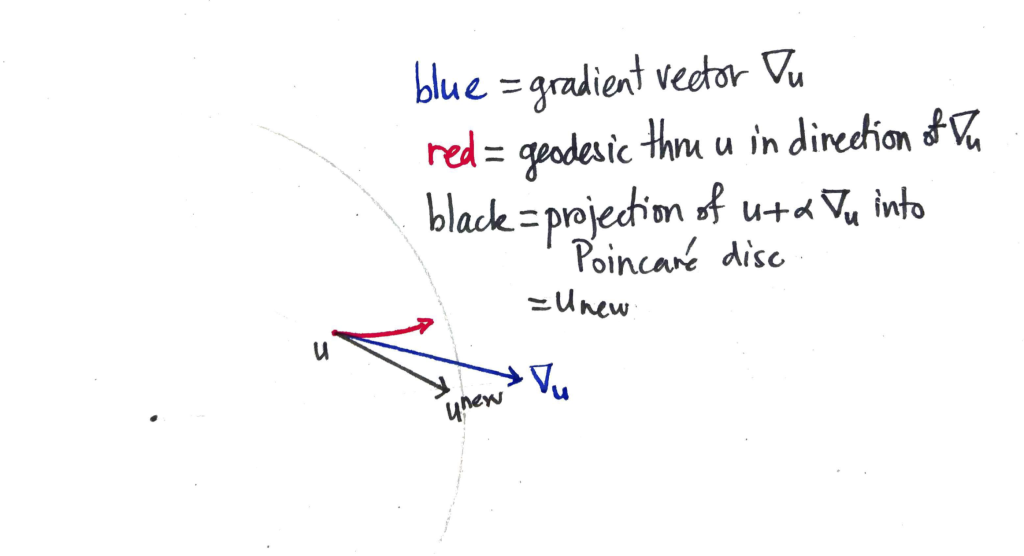 blue = gradient vector ∇u
red = geodesic thru u in direction of ∇u
black = projection of u+α ∇u into
Poincaré disc
= u new
u
∇u
u new